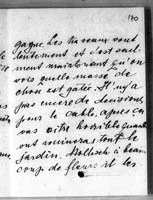 170
gagne les travaux vont
lentement et c'est seul-
ment maintenant qu'on
vois quelle masse de
chose est gatée. Il n'y a
pas encore de decisions
pour le cable, après ca
vas être horrible quand
ont ruinera tout le
jardin. Hollisch a beau-
coup de fleurs et les